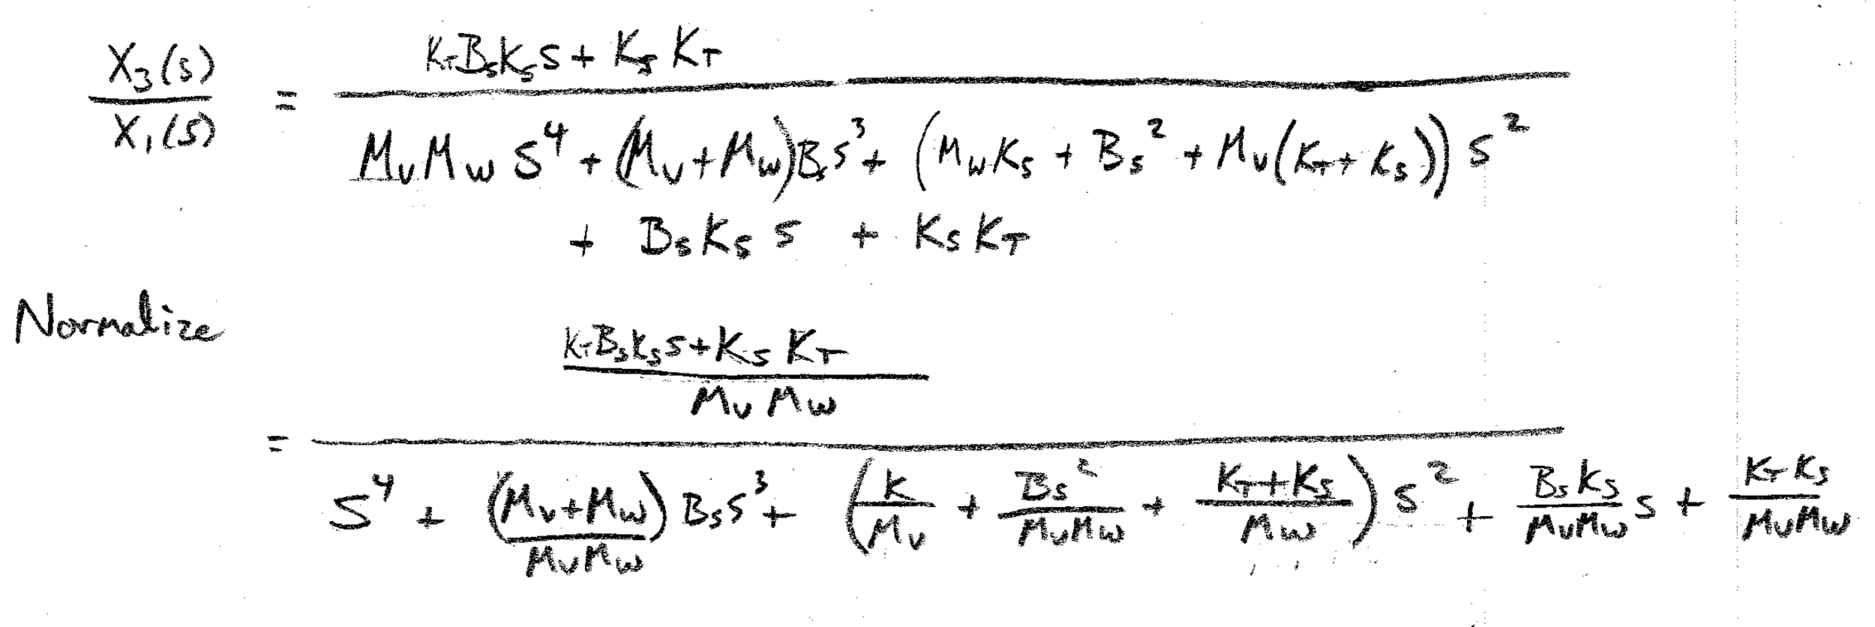 X₃(s) / X₁(s) = (K_T B_s K_s s + K_s K_T) / (M_v M_w s⁴ + (M_v + M_w) B_s s³ + (M_w K_s + B_s² + M_v (K_T + K_s)) s²
+ B_s K_s s + K_s K_T)
Normalize
= ((K_T B_s K_s s + K_s K_T) / (M_v M_w)) / (s⁴ + ((M_v + M_w) / (M_v M_w)) B_s s³ + (K / M_v + B_s² / (M_v M_w) + (K_T + K_s) / M_w) s² + (B_s K_s / (M_v M_w)) s + K_T K_s / (M_v M_w))